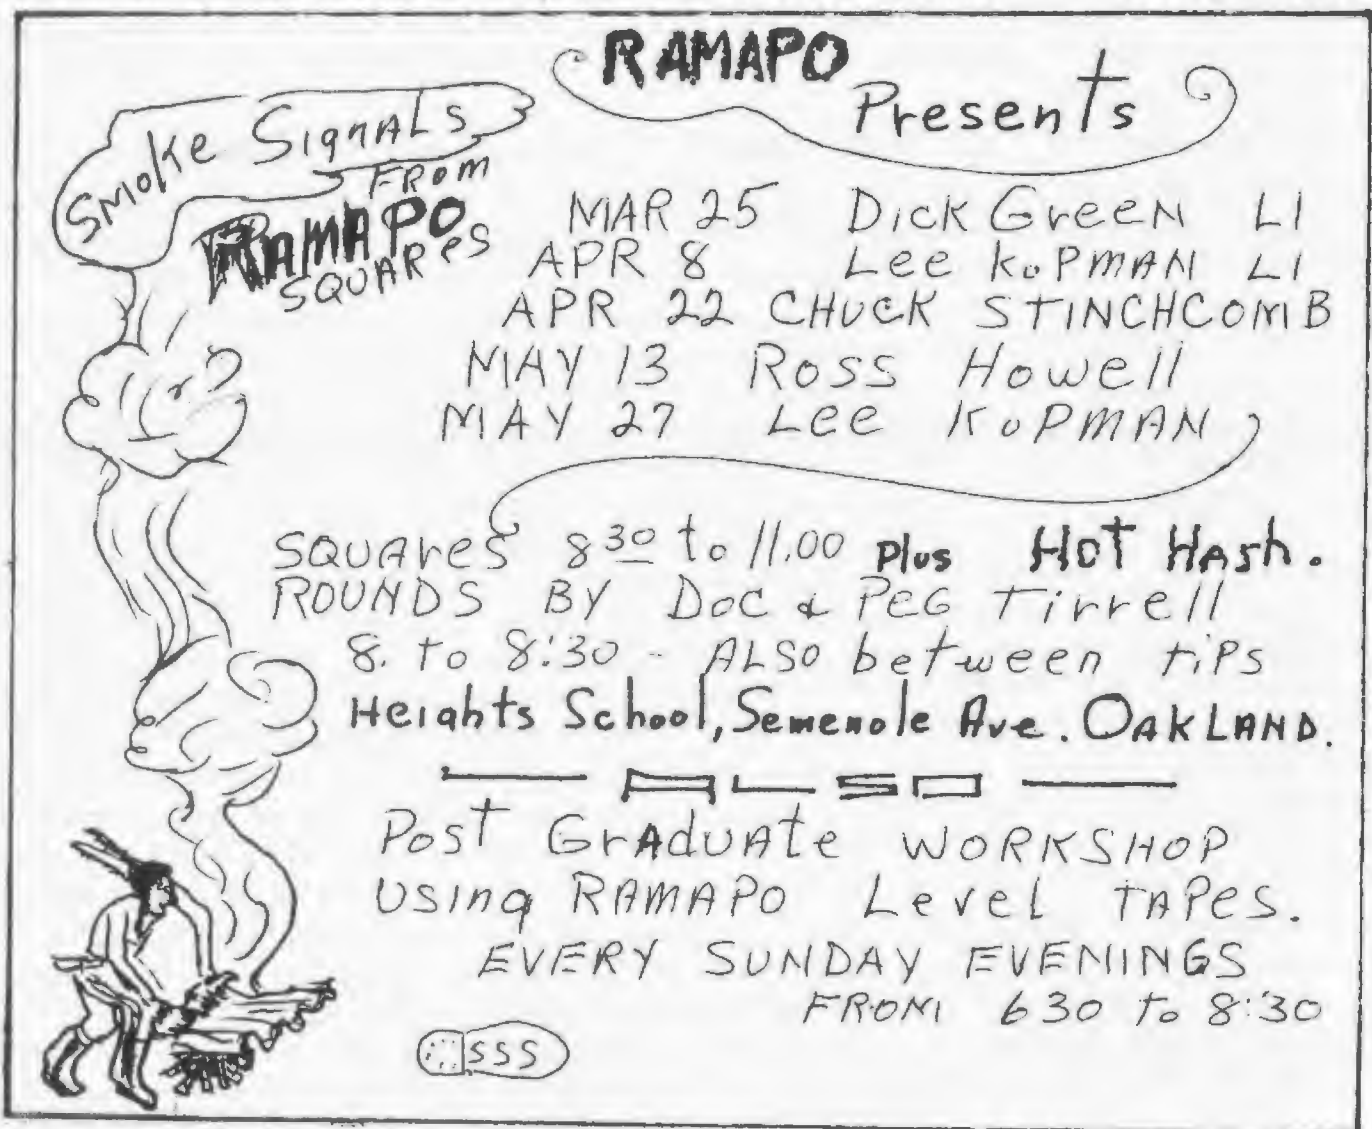 RAMAPO
Presents
Smoke Signals
FROM
RAMAPO
SQUARes
MAR 25 Dick Green LI
APR 8 Lee KoPMAN LI
APR 22 CHUCK STINCHCOMB
MAY 13 Ross Howell
MAY 27 Lee KoPMAN
SQUAres 8 30 to 11.00 Plus HOT HAsh.
ROUNDS BY Doc & PeG Tirrell
8. to 8:30 - ALSO between tiPs
Heights School, Semenole Ave. OAKLAND.
ALSO
Post GrAduAte WORKSHOP
Using RAMAPO Level TAPes.
EVERY SUNDAY EVENINGS
FROM 6 30 to 8:30
SSS